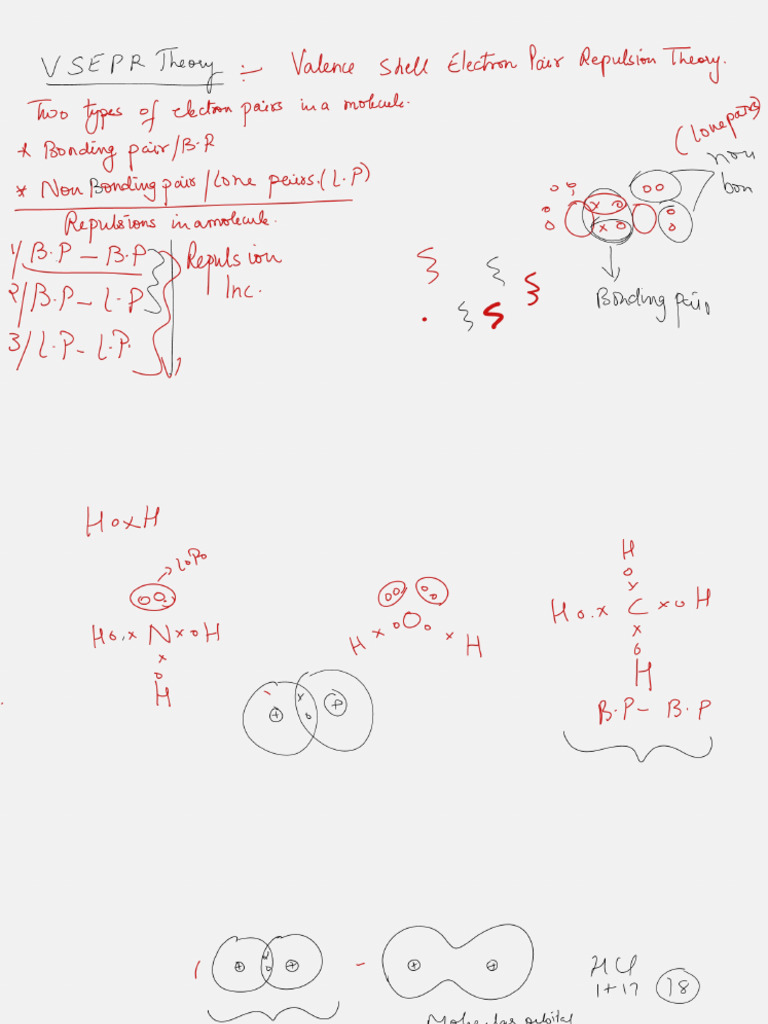 VSEPR Theory :- Valence Shell Electron Pair Repulsion Theory.
Two types of electron pairs in a molecule.
* Bonding pair/B.P
* Non Bonding pair/Lone peirs.(L.P)
(lone pairs)
non
bon
Repulsions in a molecule.
1/ B.P - B.P
Repulsion
Inc.
2/ B.P - L.P
3/ L.P - L.P.
Bonding pair
H o x H
L.P
H o . x N x o H
x
o
H
H x o O o x H
H
o
x
H o . x C x o H
x
o
H
B.P - B.P
+ x o +
+ o +
- + +
HCl
1+17 18
Molecular orbital